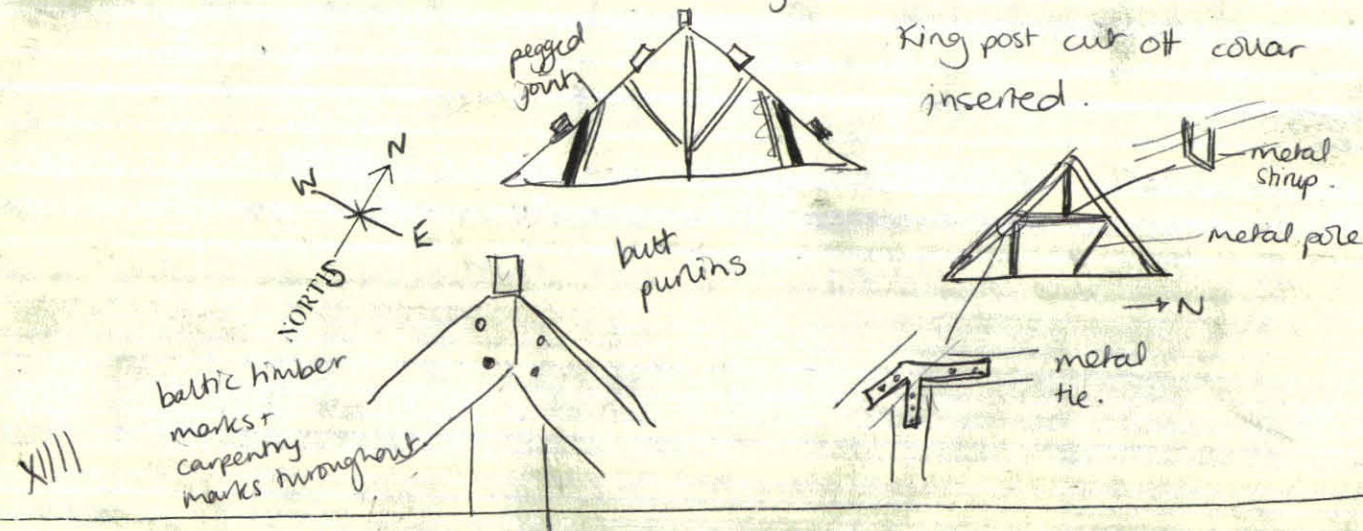 pegged
joint
King post cut off collar
inserted.
metal
stirup.
metal pole
N
W
E
S
NORTH
N
butt
purlins
metal
tie.
baltic timber
marks +
carpentry
marks throughout
XIIII